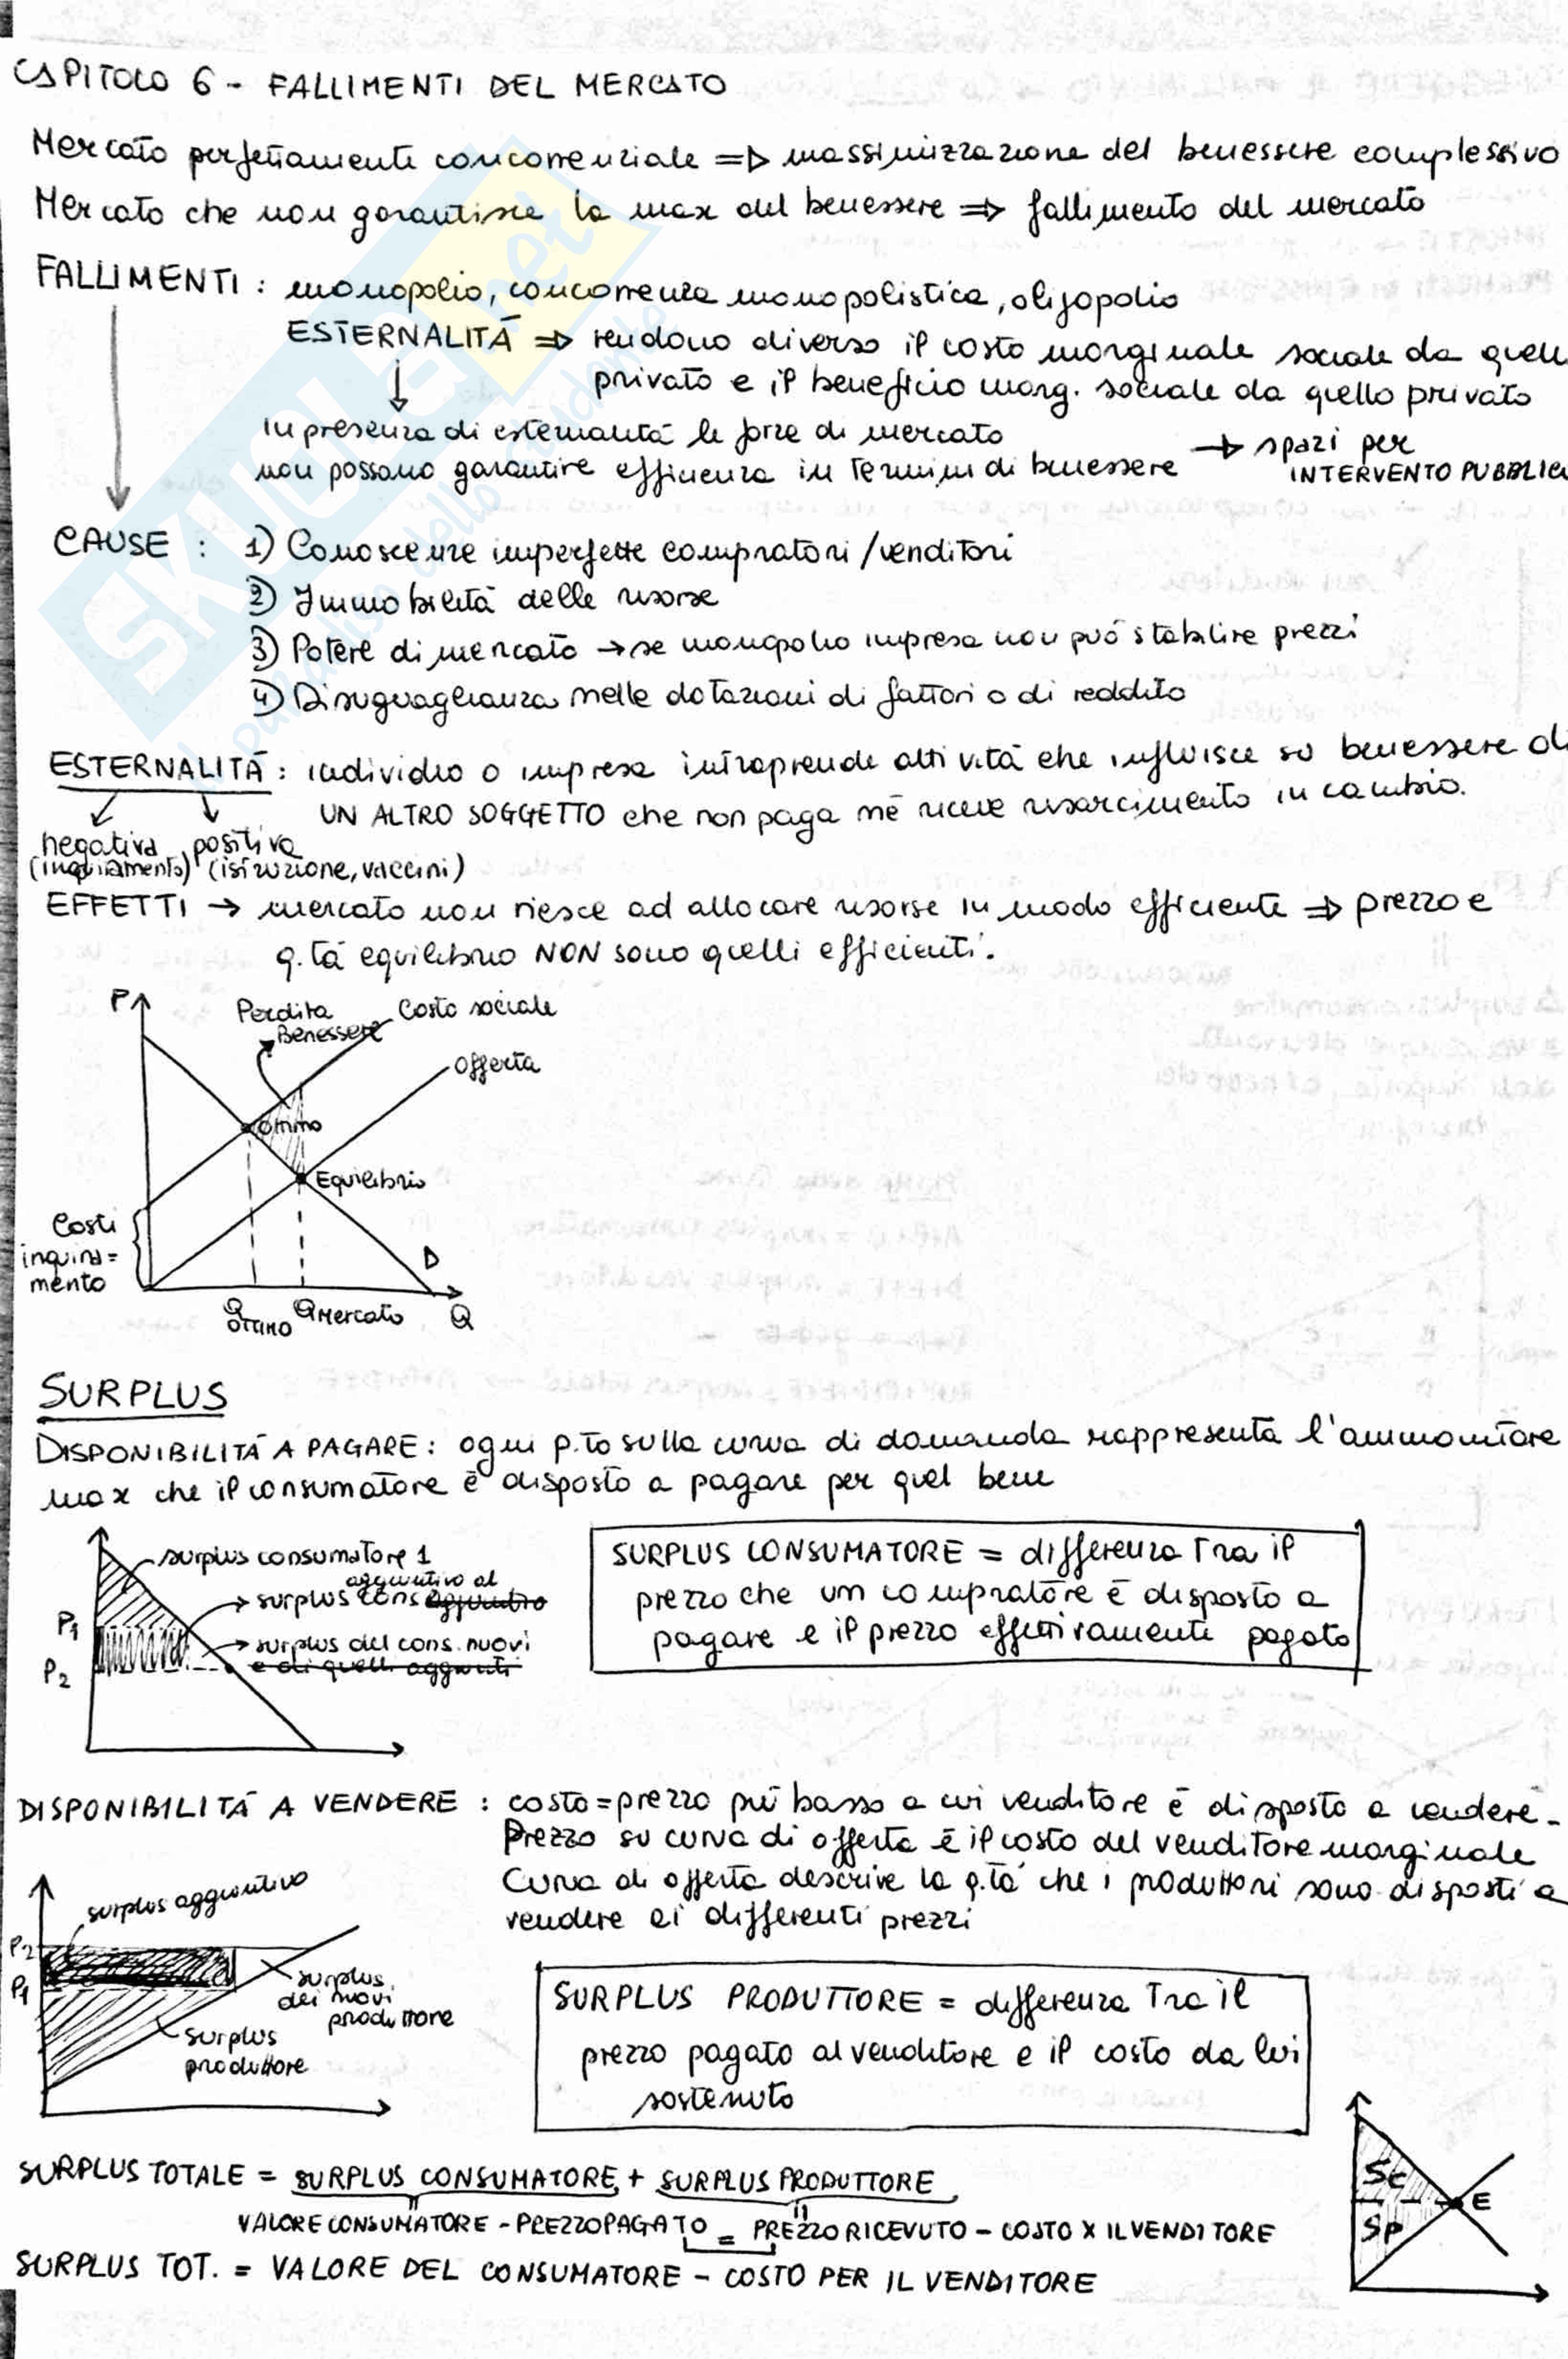 CAPITOLO 6 - FALLIMENTI DEL MERCATO
Mercato perfettamente concorrenziale => massimizzazione del benessere complessivo
Mercato che non garantisce la max del benessere => fallimento del mercato
FALLIMENTI : monopolio, concorrenza monopolistica, oligopolio
ESTERNALITÁ => rendono diverso il costo marginale sociale da quell
privato e il beneficio marg. sociale da quello privato
In presenza di esternalitá le forze di mercato
non possono garantire efficienza in termini di benessere → spazi per
INTERVENTO PUBBLIC
CAUSE : 1) Conoscenze imperfette compratori/venditori
2) Immobilitá delle risorse
3) Potere di mercato → se monopolio impresa non puó stabilire prezzi
4) Disuguaglianza nelle dotazioni di fattori o di reddito
ESTERNALITÁ : individuo o impresa intraprende attivitá che influisce su benessere di
UN ALTRO SOGGETTO che non paga né riceve risarcimento in cambio.
negativa positiva
(inquinamento) (istruzione, vaccini)
EFFETTI → mercato non riesce ad allocare risorse in modo efficiente => prezzo e
q.tá equilibrio NON sono quelli efficienti.
P
Perdita Benessere
Costo sociale
Offerta
Ottimo
Equilibrio
Costi
inquina=
mento
D
Q ottimo
Q Mercato
Q
SURPLUS
DISPONIBILITÁ A PAGARE : ogni p.to sulla curva di domanda rappresenta l'ammontare
max che il consumatore é disposto a pagare per quel bene
surplus consumatore 1
aggiuntivo al
→ surplus cons aggiuntivo
P1
→ surplus del cons. nuovi
e di quelli aggiunti
P2
SURPLUS CONSUMATORE = differenza tra il
prezzo che un compratore é disposto a
pagare e il prezzo effettivamente pagato
DISPONIBILITÁ A VENDERE : costo = prezzo piú basso a cui venditore é disposto a vendere.
Prezzo su curva di offerta é il costo del venditore marginale
Curva di offerta descrive la q.tá che i produttori sono disposti a
vendere ai differenti prezzi
surplus aggiuntivo
P2
P1
surplus
dei nuovi
produttore
surplus
produttore
SURPLUS PRODUTTORE = differenza tra il
prezzo pagato al venditore e il costo da lui
sostenuto
SURPLUS TOTALE = SURPLUS CONSUMATORE + SURPLUS PRODUTTORE
VALORE CONSUMATORE - PREZZO PAGATO = PREZZO RICEVUTO - COSTO X IL VENDITORE
SURPLUS TOT. = VALORE DEL CONSUMATORE - COSTO PER IL VENDITORE
SC
E
SP
SKUOLA.net
il paradiso dello studente